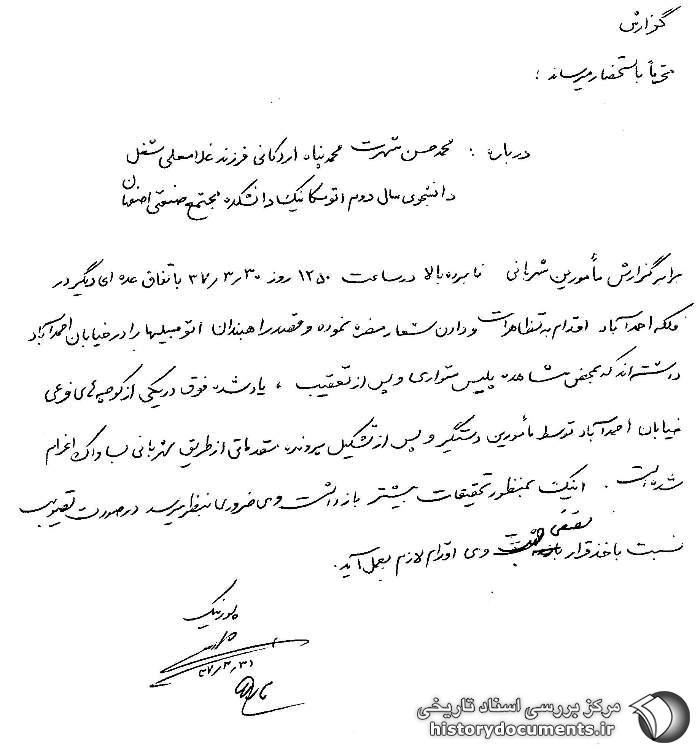 گزارش
محترماً باستحضار میرساند :
درباره : محمدحسن شهرت محمد پناه اردکانی فرزند غلامعلی شغل
دانشجوی سال دوم اتومکانیک دانشکده مجتمع صنعتی اصفهان
برابر گزارش مأمورین شهربانی نامبرده بالا در ساعت ۱۲۵۰ روز ۳۷/۳/۳۰ باتفاق عده ای دیگر در
فلکه احمدآباد اقدام به تظاهرات و دادن شعار مضره نموده و قصد راهبندان اتومبیلها را در خیابان احمدآباد
داشته اند که بمحض مشاهده پلیس متواری و پس از تعقیب ، یاد شده فوق در یکی از کوچه های فرعی
خیابان احمدآباد توسط مأمورین دستگیر و پس از تشکیل پرونده مقدماتی از طریق شهربانی بساواک اعزام
شده است . اینک بمنظور تحقیقات بیشتر بازداشت وی ضروری بنظر میرسد در صورت تصویب
نسبت باخذ قرار وی اقدام لازم بعمل آید .
۳۷/۳/۳۱
مرکز بررسی اسناد تاریخی
historydocuments.ir